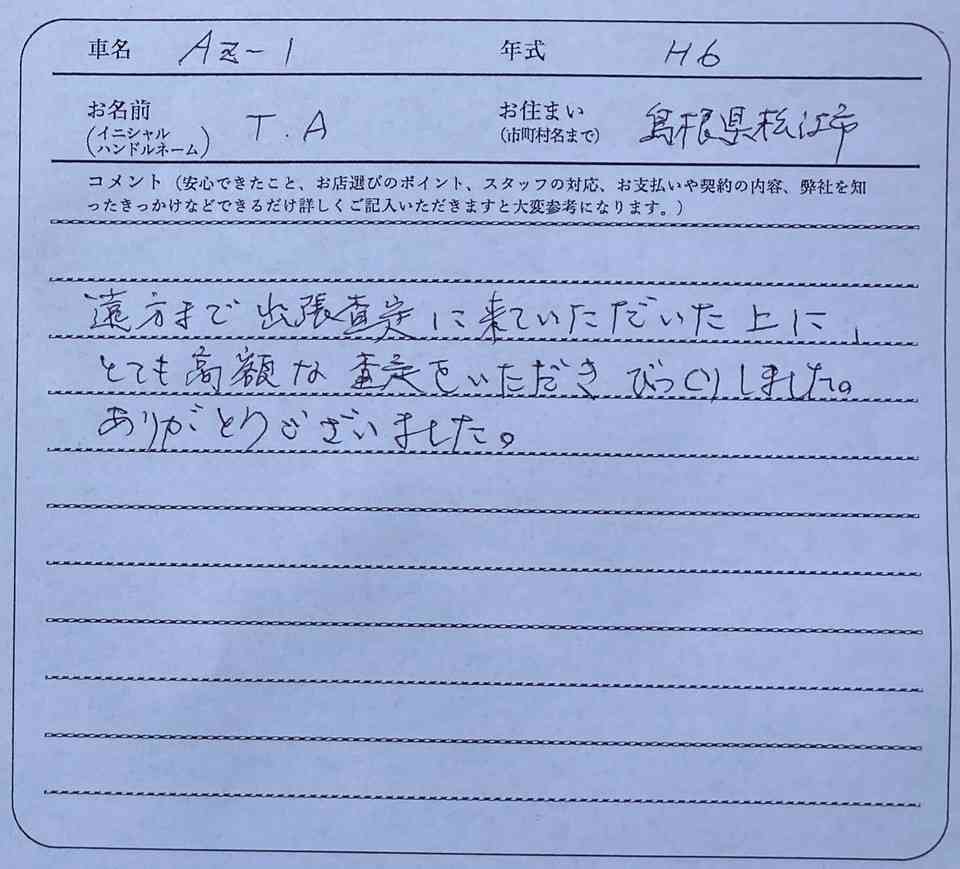 車名 AZ-1 年式 H6
お名前 (イニシャル ハンドルネーム) T.A お住まい (市町村名まで) 島根県松江市
コメント（安心できたこと、お店選びのポイント、スタッフの対応、お支払いや契約の内容、弊社を知
ったきっかけなどできるだけ詳しくご記入いただきますと大変参考になります。）
遠方まで出張査定に来ていただいた上に、
とても高額な査定をいただきびっくりしました。
ありがとうございました。